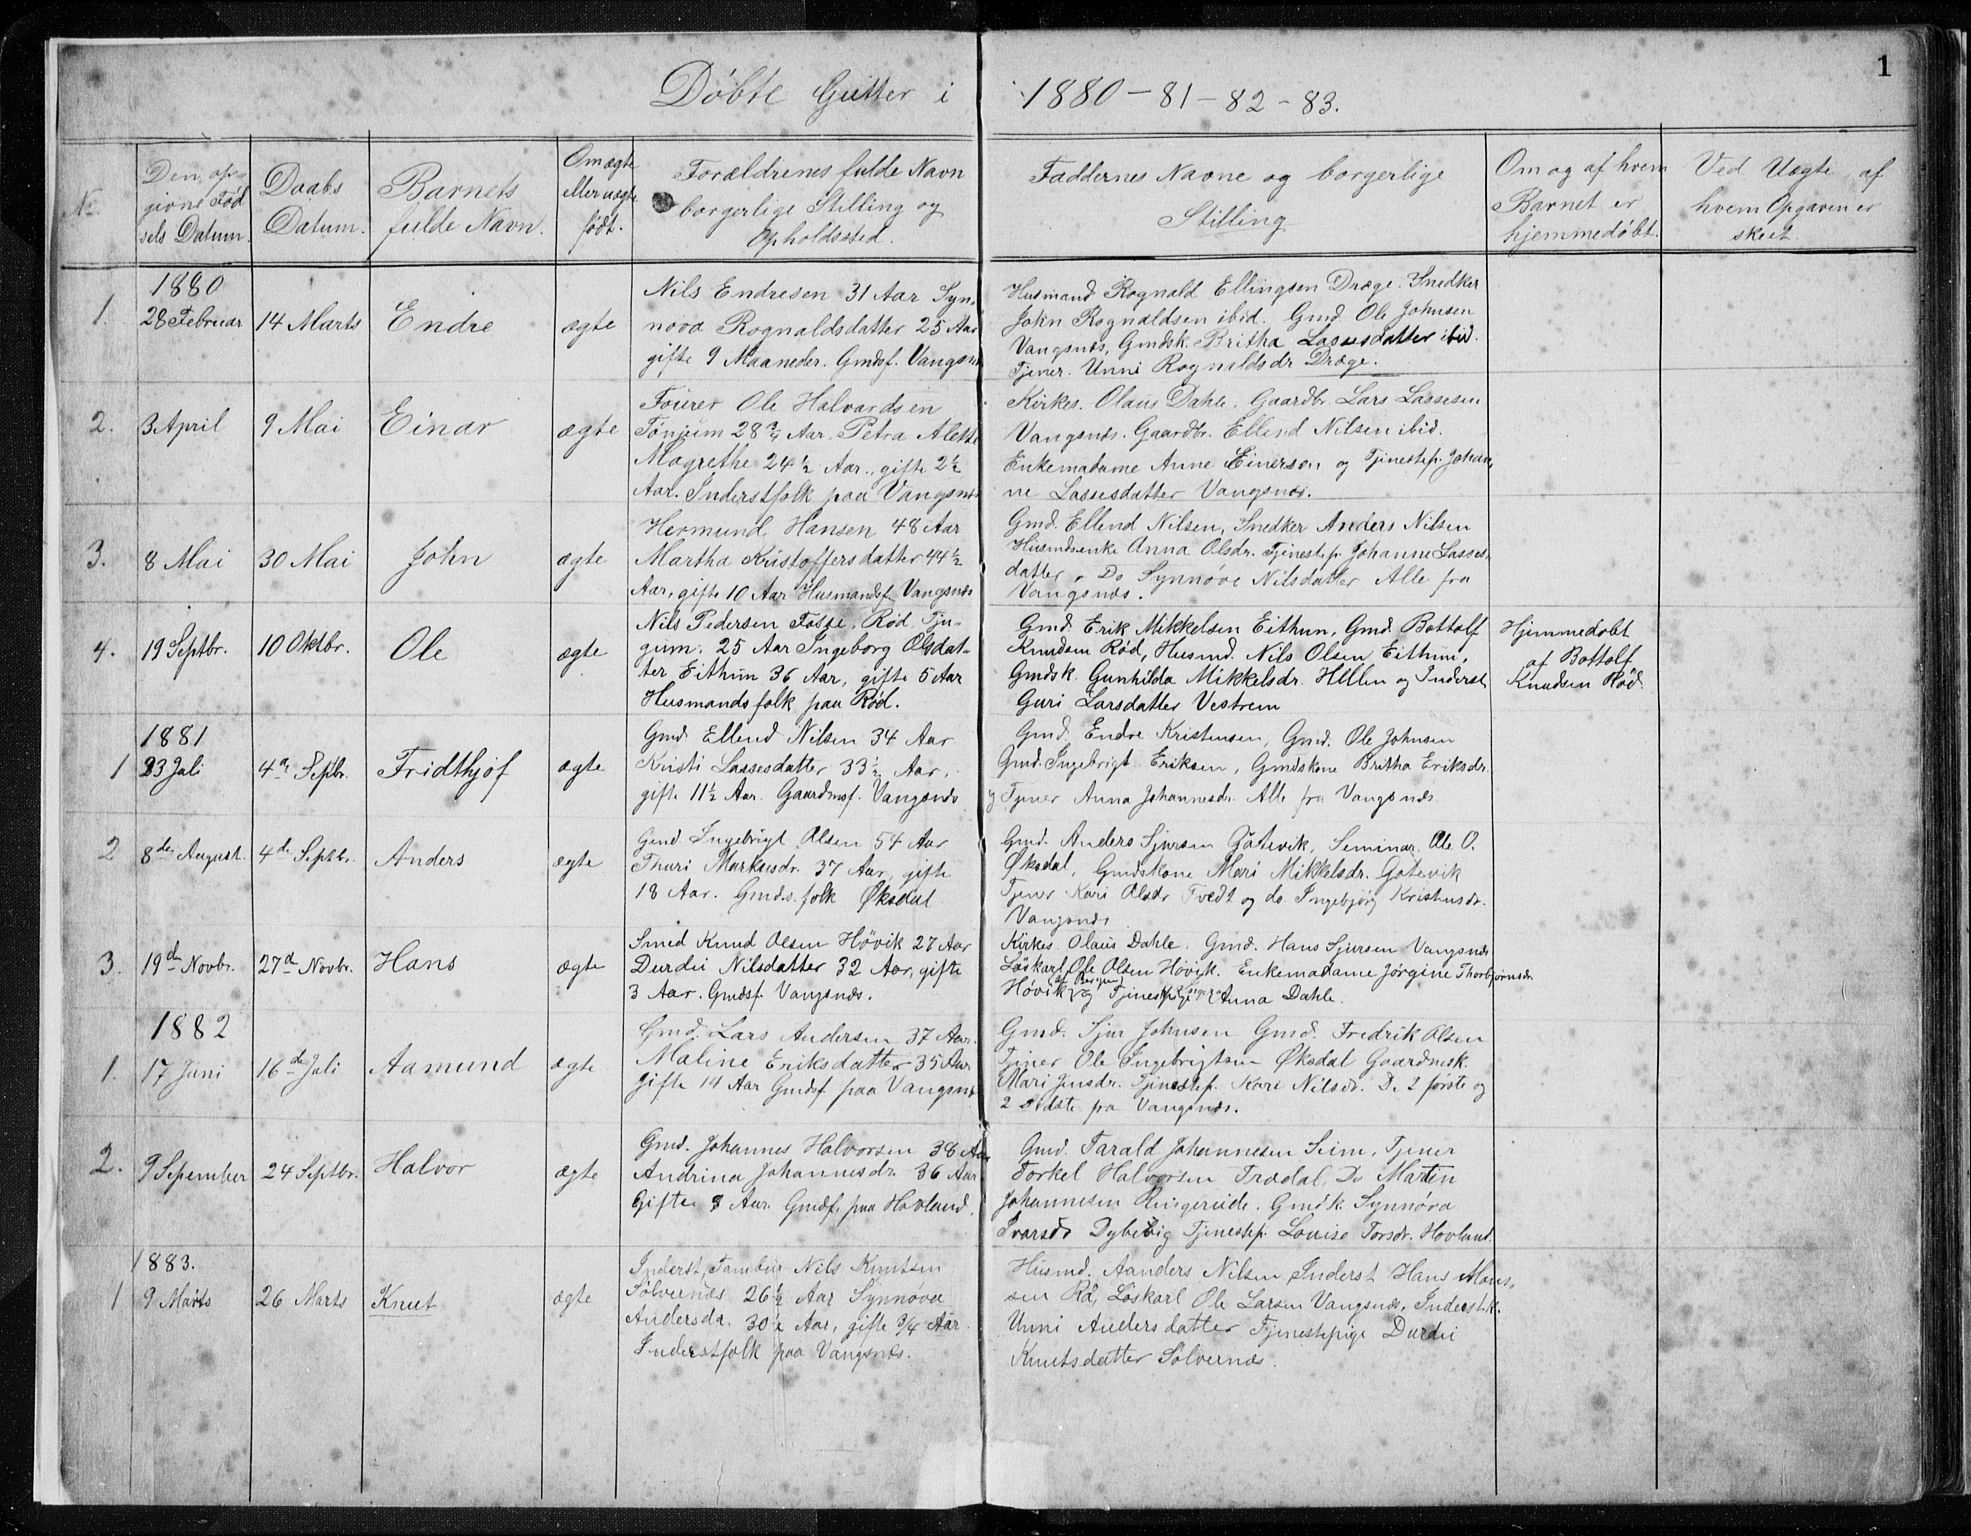 1
Døbte Gutter i 1880 - 81 - 82 - 83.
No.
Den opgivne Fødsels Datum.
Daabs Datum.
Barnets fulde Navn.
Om ægte eller uægte født.
Forældrenes fulde Navn borgerlige Stilling og Opholdssted.
Faddernes Navne og borgerlige Stilling
Om og af hvem Barnet er hjemmedøbt.
Ved Uægte af hvem Opgaven er skeet.
1880
1. 28 Februar 14 Marts Endre ægte
Nils Endresen 31 Aar Syn-
nova Rognaldsdatter 25 Aar
gifte 9 Maaneder. Gmdsf. Vangsnæs
Husmand Rognald Ellingsen Dræge. Snedker
John Rognaldsen ibid. Gmd. Ole Johnsen
Vangsnæs, Gmdsk. Britha Lassesdatter ibid.
Tjener. Unni Rognaldsdr Dræge.
2. 3 April 9 Mai Einar ægte
Fourer Ole Halvardsen
Tønjum 28 3/4 Aar, Petra Alette
Magrethe 24 1/2 Aar., gifte 2 1/2
Aar. Inderstfolk paa Vangsnæs
Kirkes. Olaus Dahle. Gaardbr. Lars Lassesen
Vangsnæs. Gaardbr. Ellend Nilsen ibid.
Enkemadame Anne Einerson og Tjenestep. Johan-
ne Lassesdatter Vangsnæs.
3. 8 Mai 30 Mai John ægte
Hermund Hansen 48 Aar
Martha Kristoffersdatter 44 1/2
Aar, gifte 10 Aar Husmandsf. Vangsnæs
Gmd. Ellend Nilsen, Snedker Anders Nilsen
Husmdsenke Anna Olsdr. Tjenestep. Johanne Lasses-
datter, Do Synnøve Nilsdatter Alle fra
Vangsnæs.
4. 19 Septbr. 10 Oktbr. Ole ægte
Nils Pedersen Fosse, Rød Tju-
gum. 25 Aar Ingeborg Olsdat-
ter Eithun 36 Aar, gifte 5 Aar
Husmandsfolk paa Rød.
Gmd. Erik Mikkelsen Eithun, Gmd. Bottolf
Knudsen Rød, Husmd. Nils Olsen Eithun,
Gmdsk. Gunhilda Mikkelsdr. Hellen og Inderst
Guri Larsdatter Vestrem
Hjemmedøbt
af Bottolf
Knudsen Rød.
1881
1 23 Juli 4de Septbr. Fridthjof ægte
Gmd. Ellend Nilsen 34 Aar
Kristi Lassesdatter 33 1/2 Aar,
gifte 11 1/2 Aar. Gaardmsf. Vangsnæs
Gmd. Endre Kristensen, Gmd. Ole Johnsen
Gmd. Ingebrigt Eriksen, Gmdskone Britha Eriksdr.
og Tjener Anna Johannesdr. Alle fra Vangsnæs
2 8de August. 4de Septbr. Anders ægte
Gmd Ingebrigt Olsen 54 Aar
Thuri Markusdr. 37 Aar, gifte
18 Aar. Gmds.folk Øksdal
Gmd. Anders Sjursen Gotevik, Seminar. Ole O.
Øksdal, Gmdskone Mari Mikkelsdr. Gotevik
Tjener Kari Olsdr Tvedt og do. Ingebjørg Kristensdr.
Vangsnæs
3. 19de Novbr. 27de Novbr. Hans ægte
Smed Knud Olsen Høvik 27 Aar
Durdei Nilsdatter 32 Aar, gifte
3 Aar. Gmdsf. Vangsnæs.
Kirkes. Olaus Dahle. Gmd. Hans Sjursen Vangsnæs
Løskarl Ole Olsen Høvik. Enkemadame Jørgine Thorbjørnsdr.
Høvik af Bergen og Tjenestepige Anna Dahle.
1882
1. 17 Juni 16de Juli Aamund ægte
Gmd. Lars Andersen 37 Aar.
Maline Eriksdatter 35 Aar
gifte 14 Aar Gmdsf. paa Vangsnæs
Gmd. Sjur Johnsen Gmd. Fredrik Olsen
Tjener Ole Ingebrigtsen Øksdal Gaardmsk.
Mari Jensdr. Tjenestep. Kari Nilsdr. De 2 første og
2 sidste fra Vangsnæs.
2. 9 Sepember 24 Septbr. Halvor ægte
Gmd. Johannes Halvorsen 38 Aar
Andrina Johannesdr. 36 Aar
Gifte 8 Aar. Gmdf. paa Hovland.
Gmd. Tarald Johannesen Seim, Tjener
Torkel Halvorsen Trædal. Do Marten
Johannesen Ringereide. Gmdk. Synnøva
Ivarsdr Dybevig Tjenestep. Louise Torsdr. Hovland.
1883.
1 9 Marts 26 Marts Knut ægte
Inderst, Tambur Nils Knutsen
Solvernæs 26 1/2 Aar Synnøva
Andersdr. 30 1/2 Aar, gifte 3/4 Aar.
Inderstfolk paa Vangsnæs.
Husmd. Aanders Nilsen, Inderst Hans Mons-
sen Rå, Løskarl Ole Larsen Vangsnæs, Inderstk.
Unni Andersdatter Tjenestepige Durdei
Knutsdatter Solvernæs.